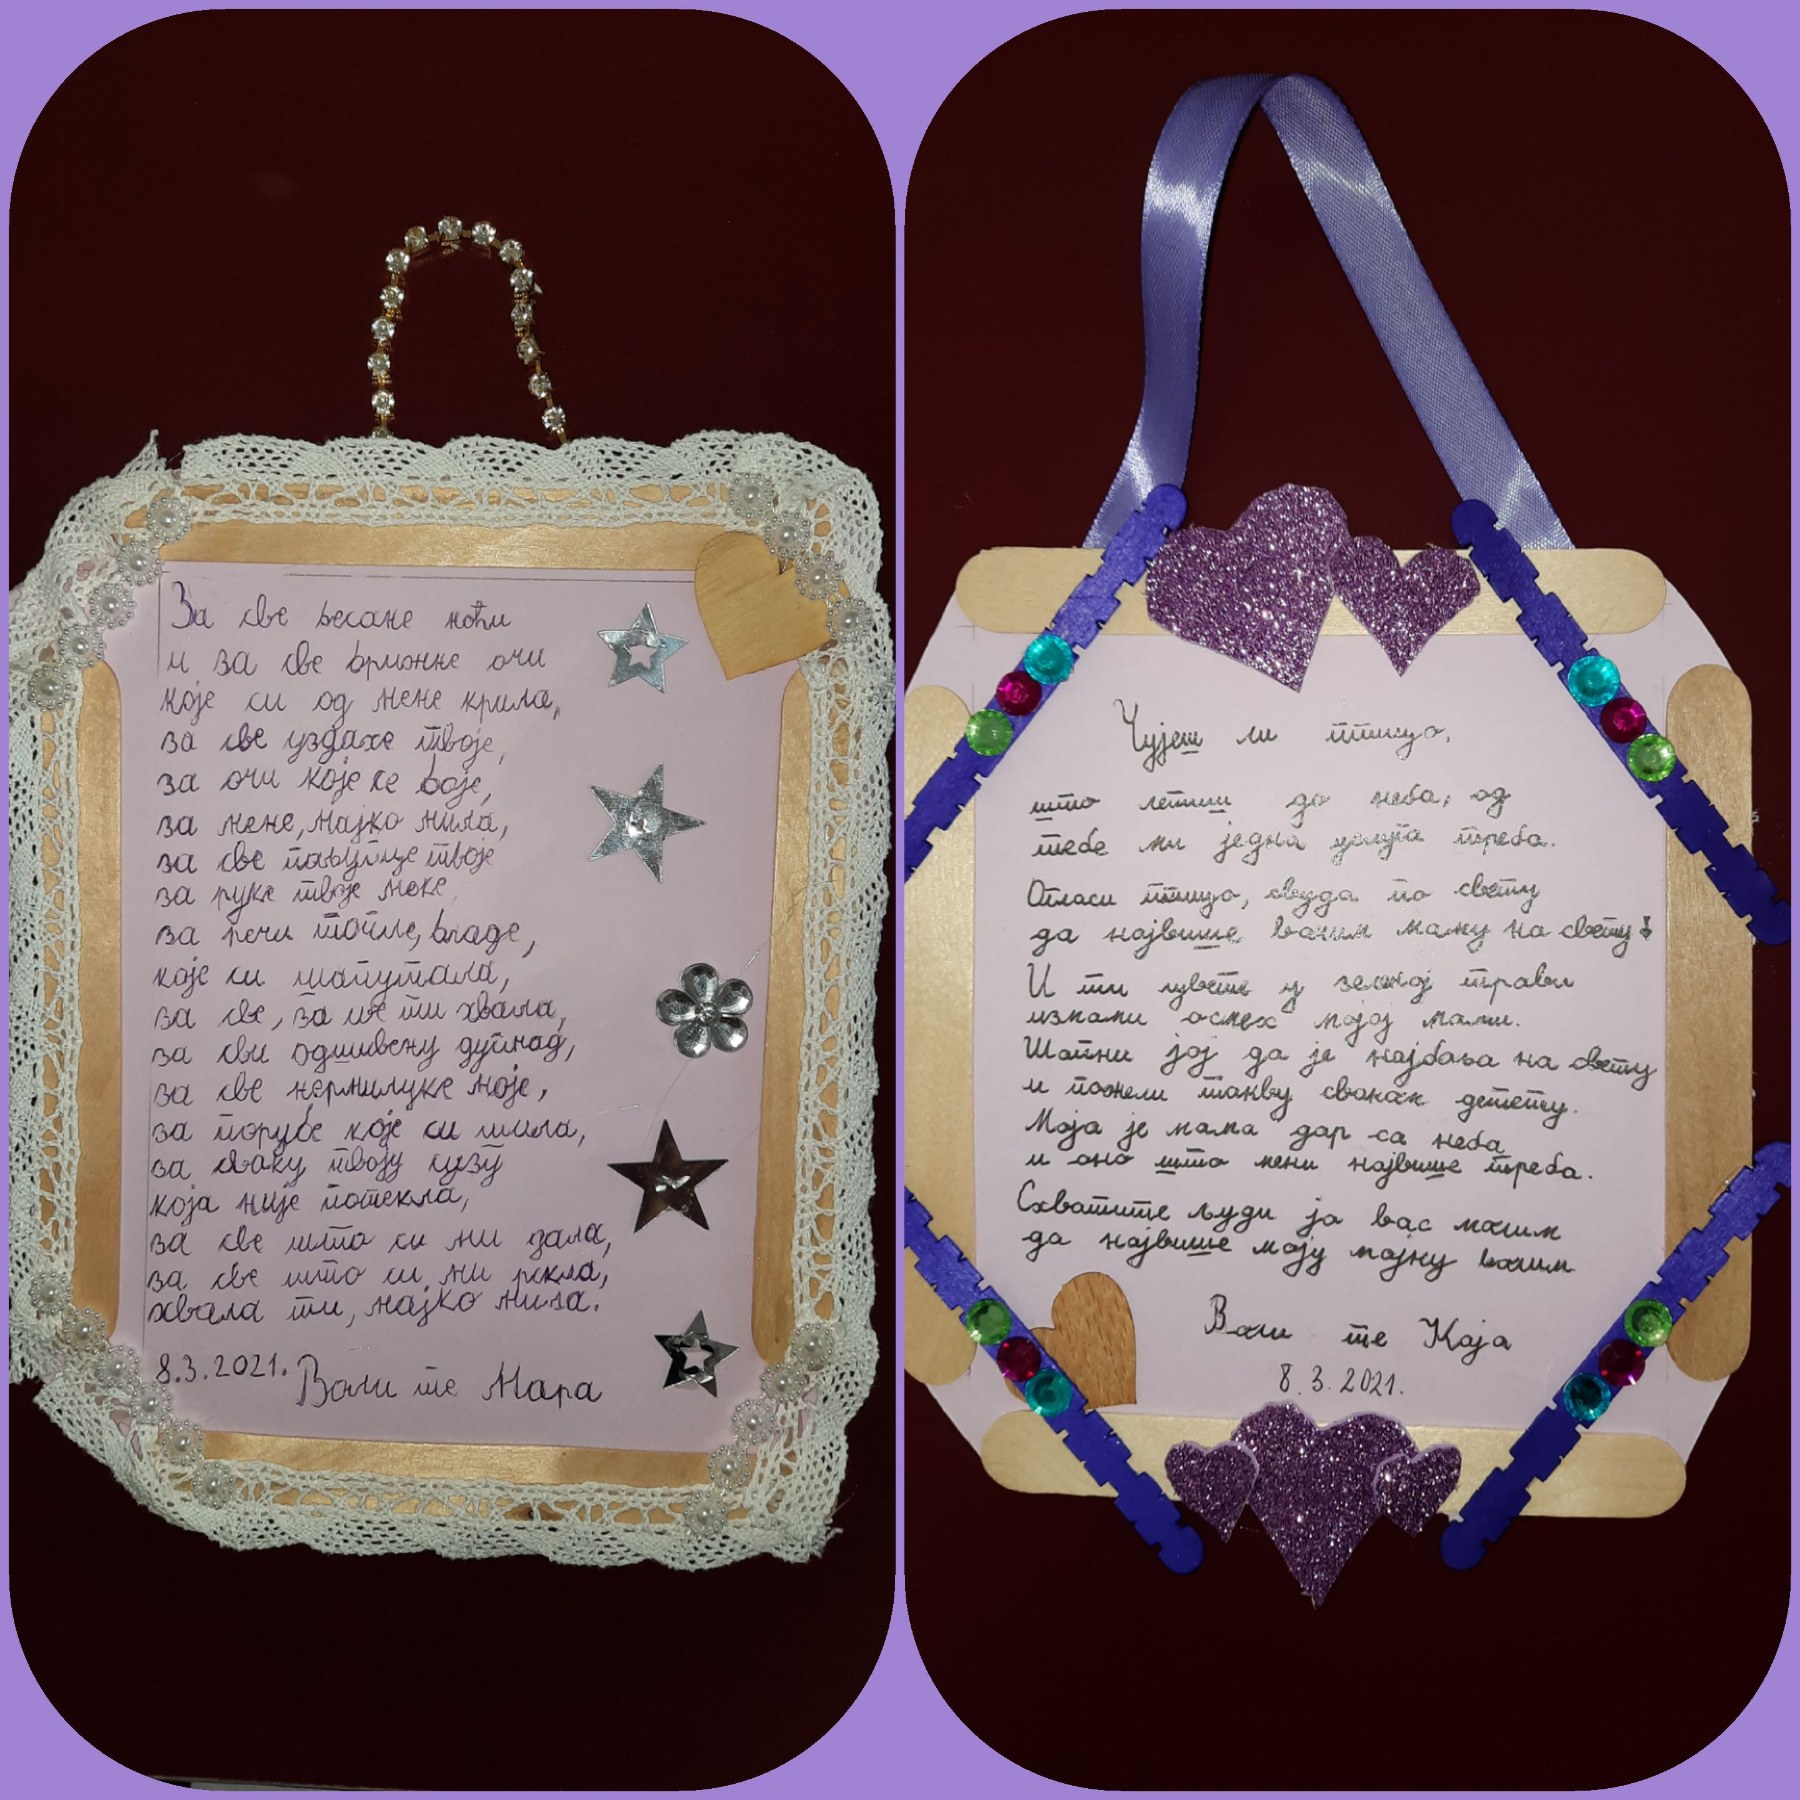 За све бесане ноћи
и за све брижне очи
које си од мене крила,
за све уздахе твоје,
за очи које се боје,
за мене, мајко мила,
за све пољупце твоје
за руке твоје меке,
за речи топле, благе,
које си шапутала,
за све, за све ти хвала,
за сви одшивену дугмад,
за све нермилуке моје,
за порубе које си шила,
за сваку твоју сузу
која није потекла,
за све што си ми дала,
за све што си ми рекла,
хвала ти, мајко мила.
8.3.2021. Воли те Мара
Чујеш ли птицо,
што летиш до неба, од
тебе ми једна услуга треба.
Огласи птицо, свуда по свету
да највише волим маму на свету!
И ти цвете у зеленој трави
измами осмех мојој мами.
Шапни јој да је најбоља на свету
и пожели такву сваком детету.
Моја је мама дар са неба
и оно што мени највише треба.
Схватите људи ја вас молим
да највише моју мајку волим
Воли те Каја
8.3.2021.